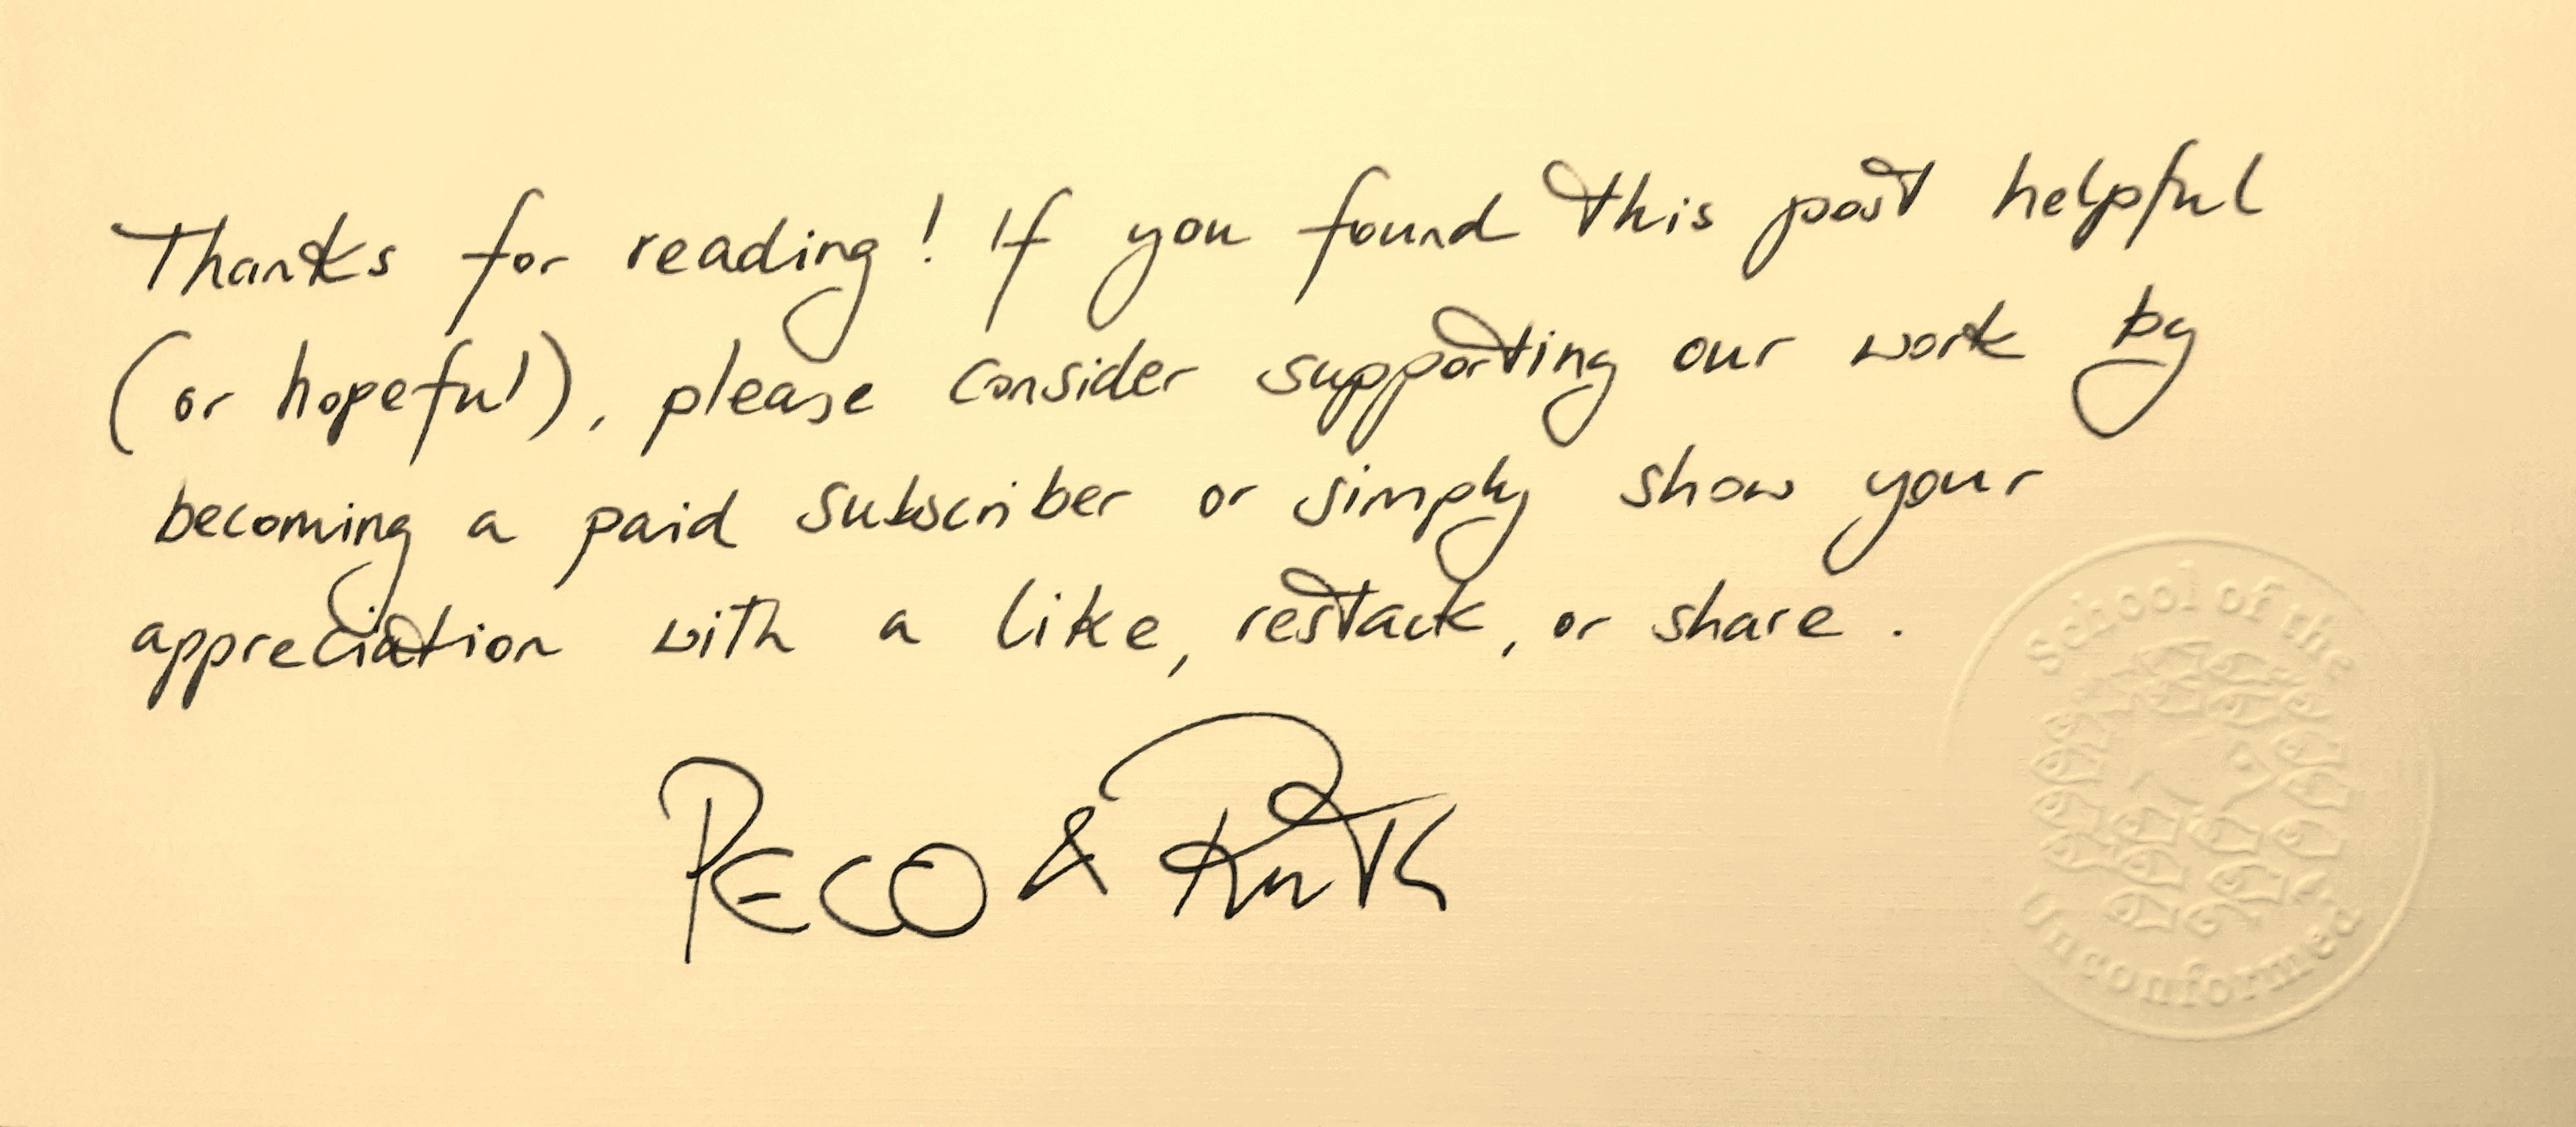 Thanks for reading! If you found this post helpful
(or hopeful), please consider supporting our work by
becoming a paid subscriber or simply show your
appreciation with a like, restack, or share.
PECO & Ruth
School of the
Unconformed